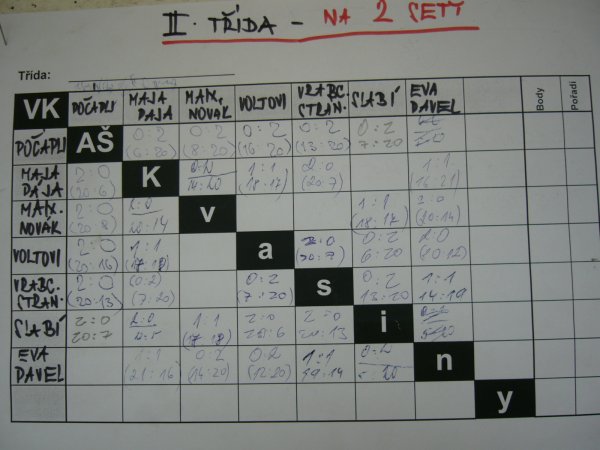 II. TŘÍDA - NA 2 SETY
Třída:
VK POČAPLI MAJA DAJA MAX. NOVÁK VOLTOVI VRABC. STRAN. SLABÍ EVA PAVEL Body Pořadí
POČAPLI AŠ 0:2 0:2 0:2 0:2 0:2
(6:20) (8:20) (16:20) (13:20) 7:20
MAJA DAJA 2:0 K 0:2 1:1 2:0 1:1
(20:6) (18:17) (20:7) (16:21)
MAX. NOVÁK 2:0 2:0 v 1:1 2:0
(20:8) 20:14 (18:17) (20:14)
VOLTOVI 2:0 1:1 a 2:0 0:2 2:0
(20:16) (17:18) (20:7) 6:20 (20:12)
VRABC. STRAN. 2:0 (0:2) s 0:2 0:2 1:1
(20:13) (7:20) (7:20) 13:20 14:19
SLABÍ 2:0 2:0 1:1 2:0 2:0 i
20:7 (17:18) 20:6 20:13
EVA PAVEL 1:1 0:2 0:2 1:1 0:2 n
(21:16) (14:20) (12:20) 19:14
y